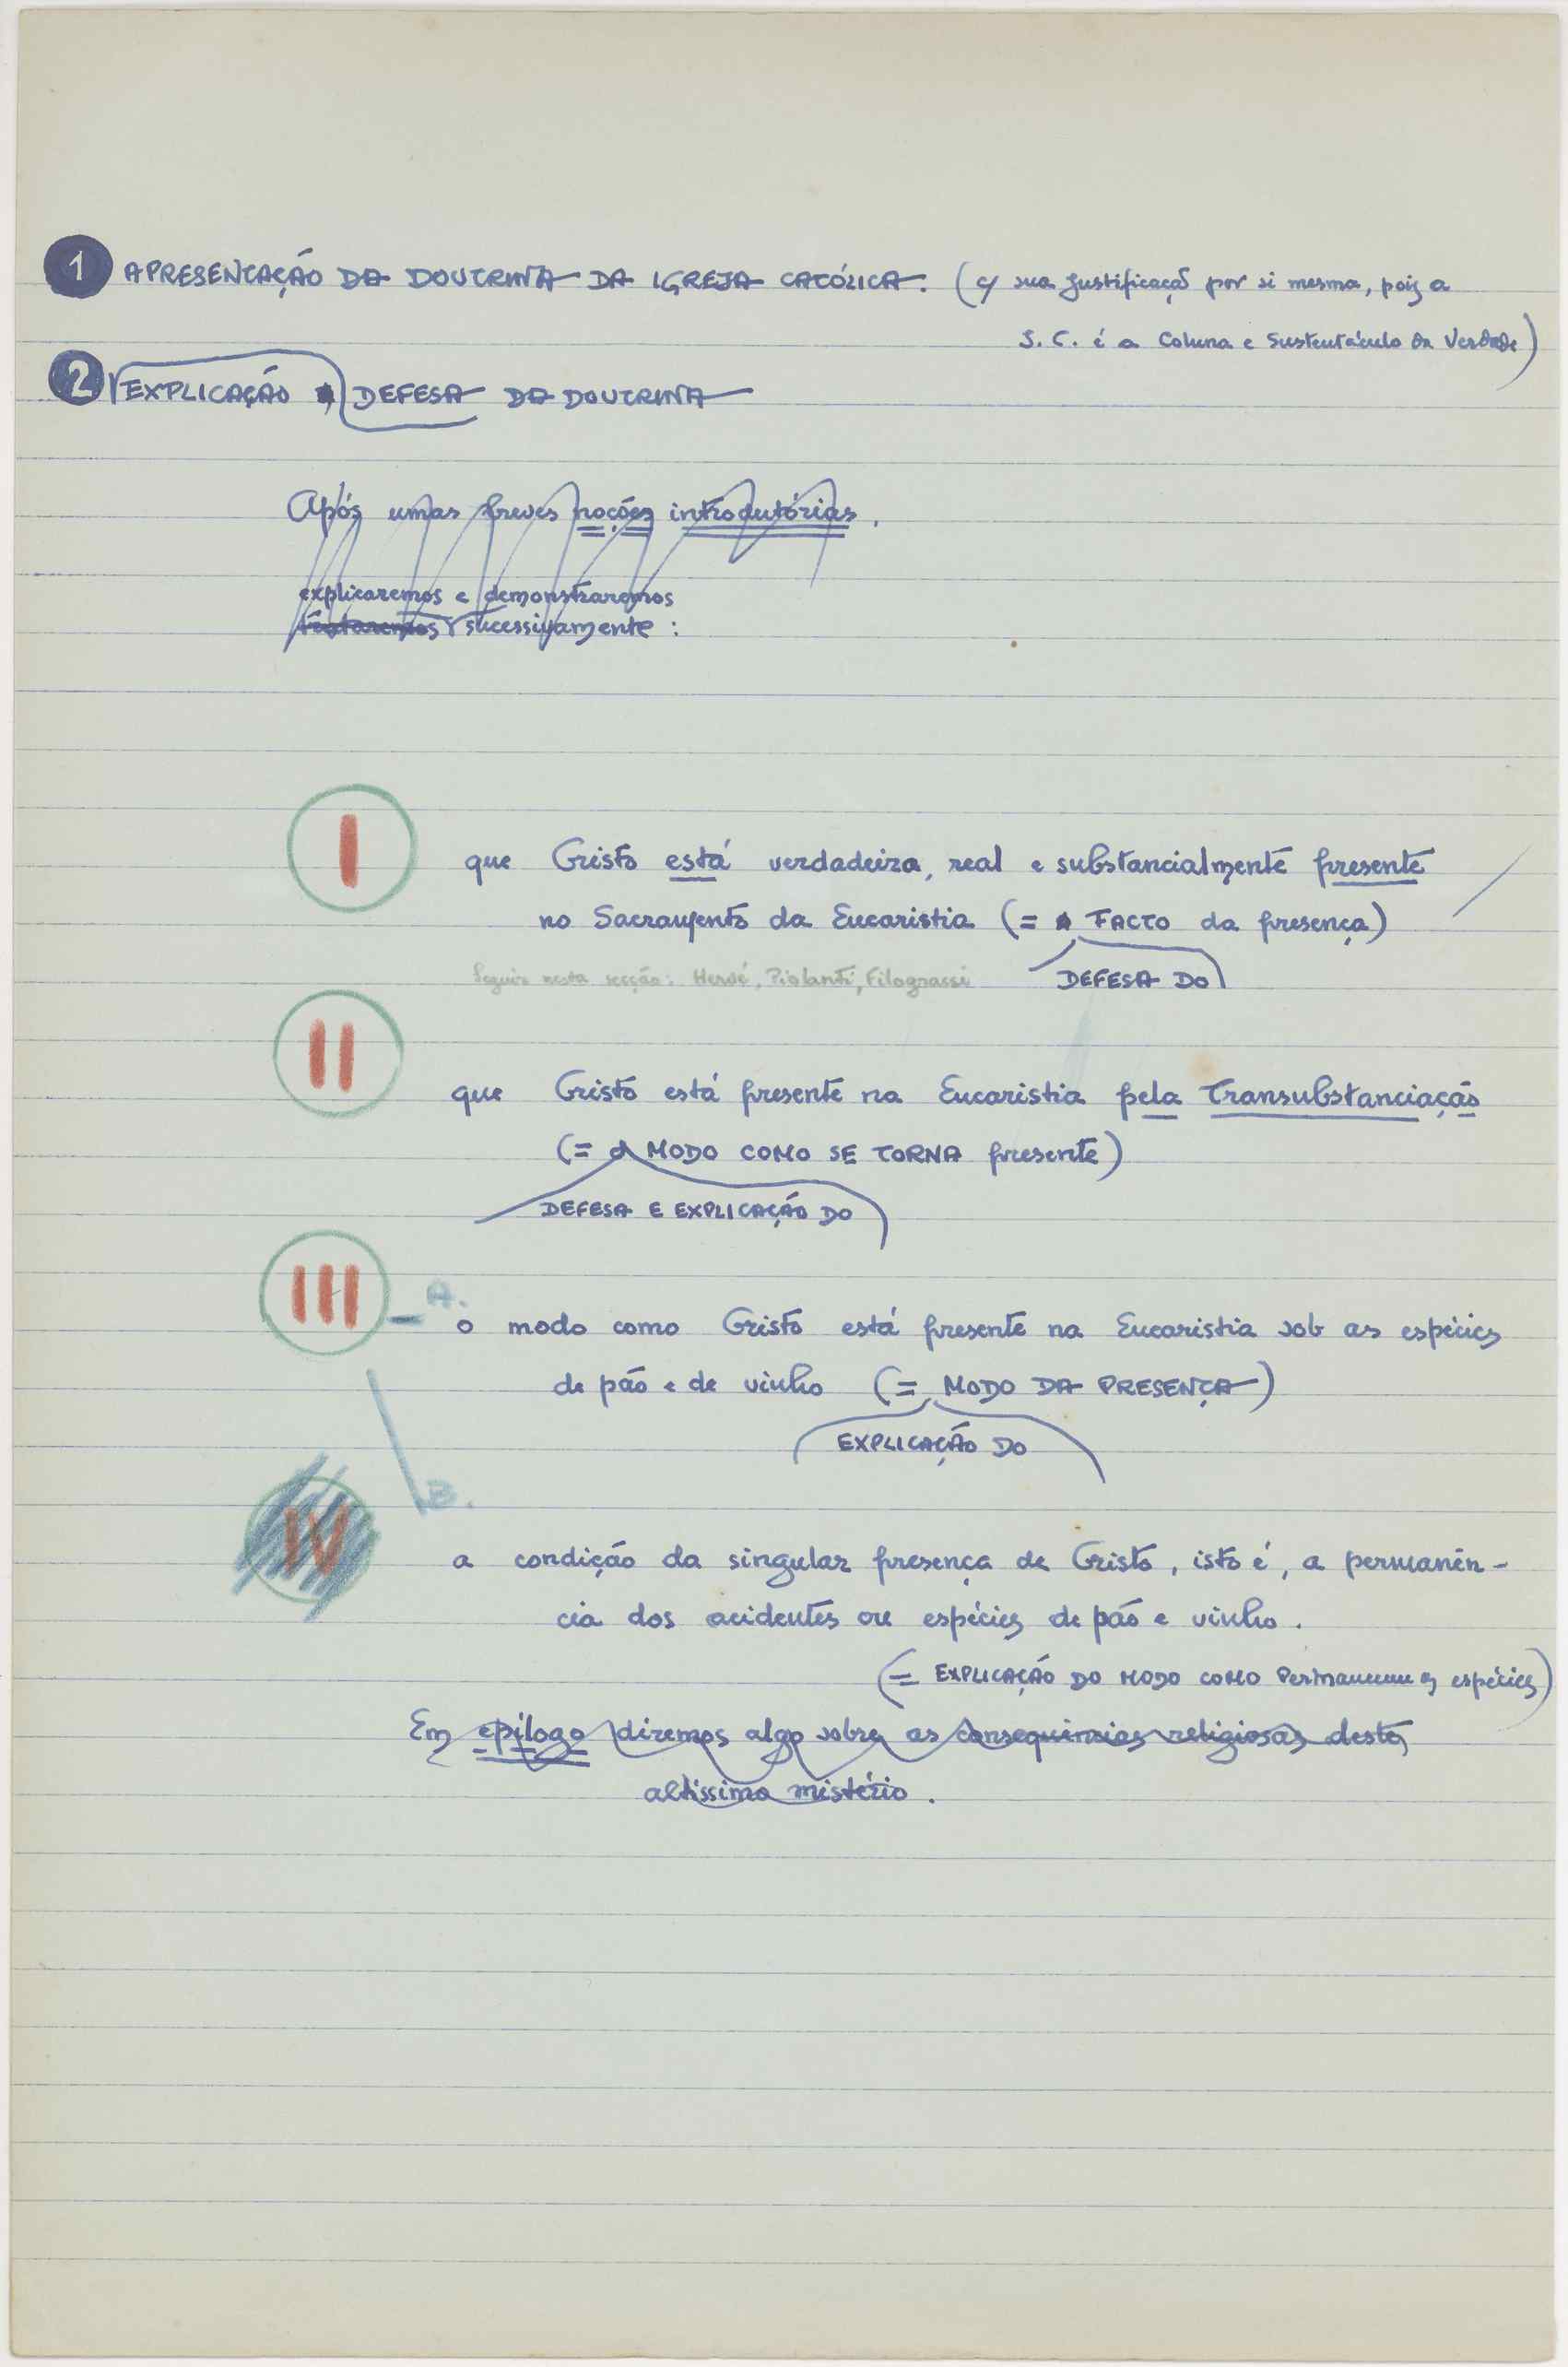 1 APRESENTAÇÃO DA DOUTRINA DA IGREJA CATÓLICA. (c/ sua justificação por si mesma, pois a
S. C. é a Coluna e Sustentáculo da Verdade)
2 EXPLICAÇÃO DEFESA DA DOUTRINA
Após umas breves noções introdutórias,
explicaremos e demonstraremos
trataremos sucessivamente :
I que Cristo está verdadeira, real e substancialmente presente
no Sacramento da Eucaristia (= FACTO da presença)
Seguir nesta secção: Hervé, Piolanti, Filograssi DEFESA DO
II que Cristo está presente na Eucaristia pela Transubstanciação
(= o MODO COMO SE TORNA presente)
DEFESA E EXPLICAÇÃO DO
III - A. o modo como Cristo está presente na Eucaristia sob as espécies
de pão e de vinho (= MODO DA PRESENÇA)
EXPLICAÇÃO DO
IV B. a condição da singular presença de Cristo, isto é, a permanên-
cia dos acidentes ou espécies de pão e vinho.
(= EXPLICAÇÃO DO MODO COMO Permanecem as espécies)
Em epílogo diremos algo sobre as consequências religiosas deste
altíssimo mistério.